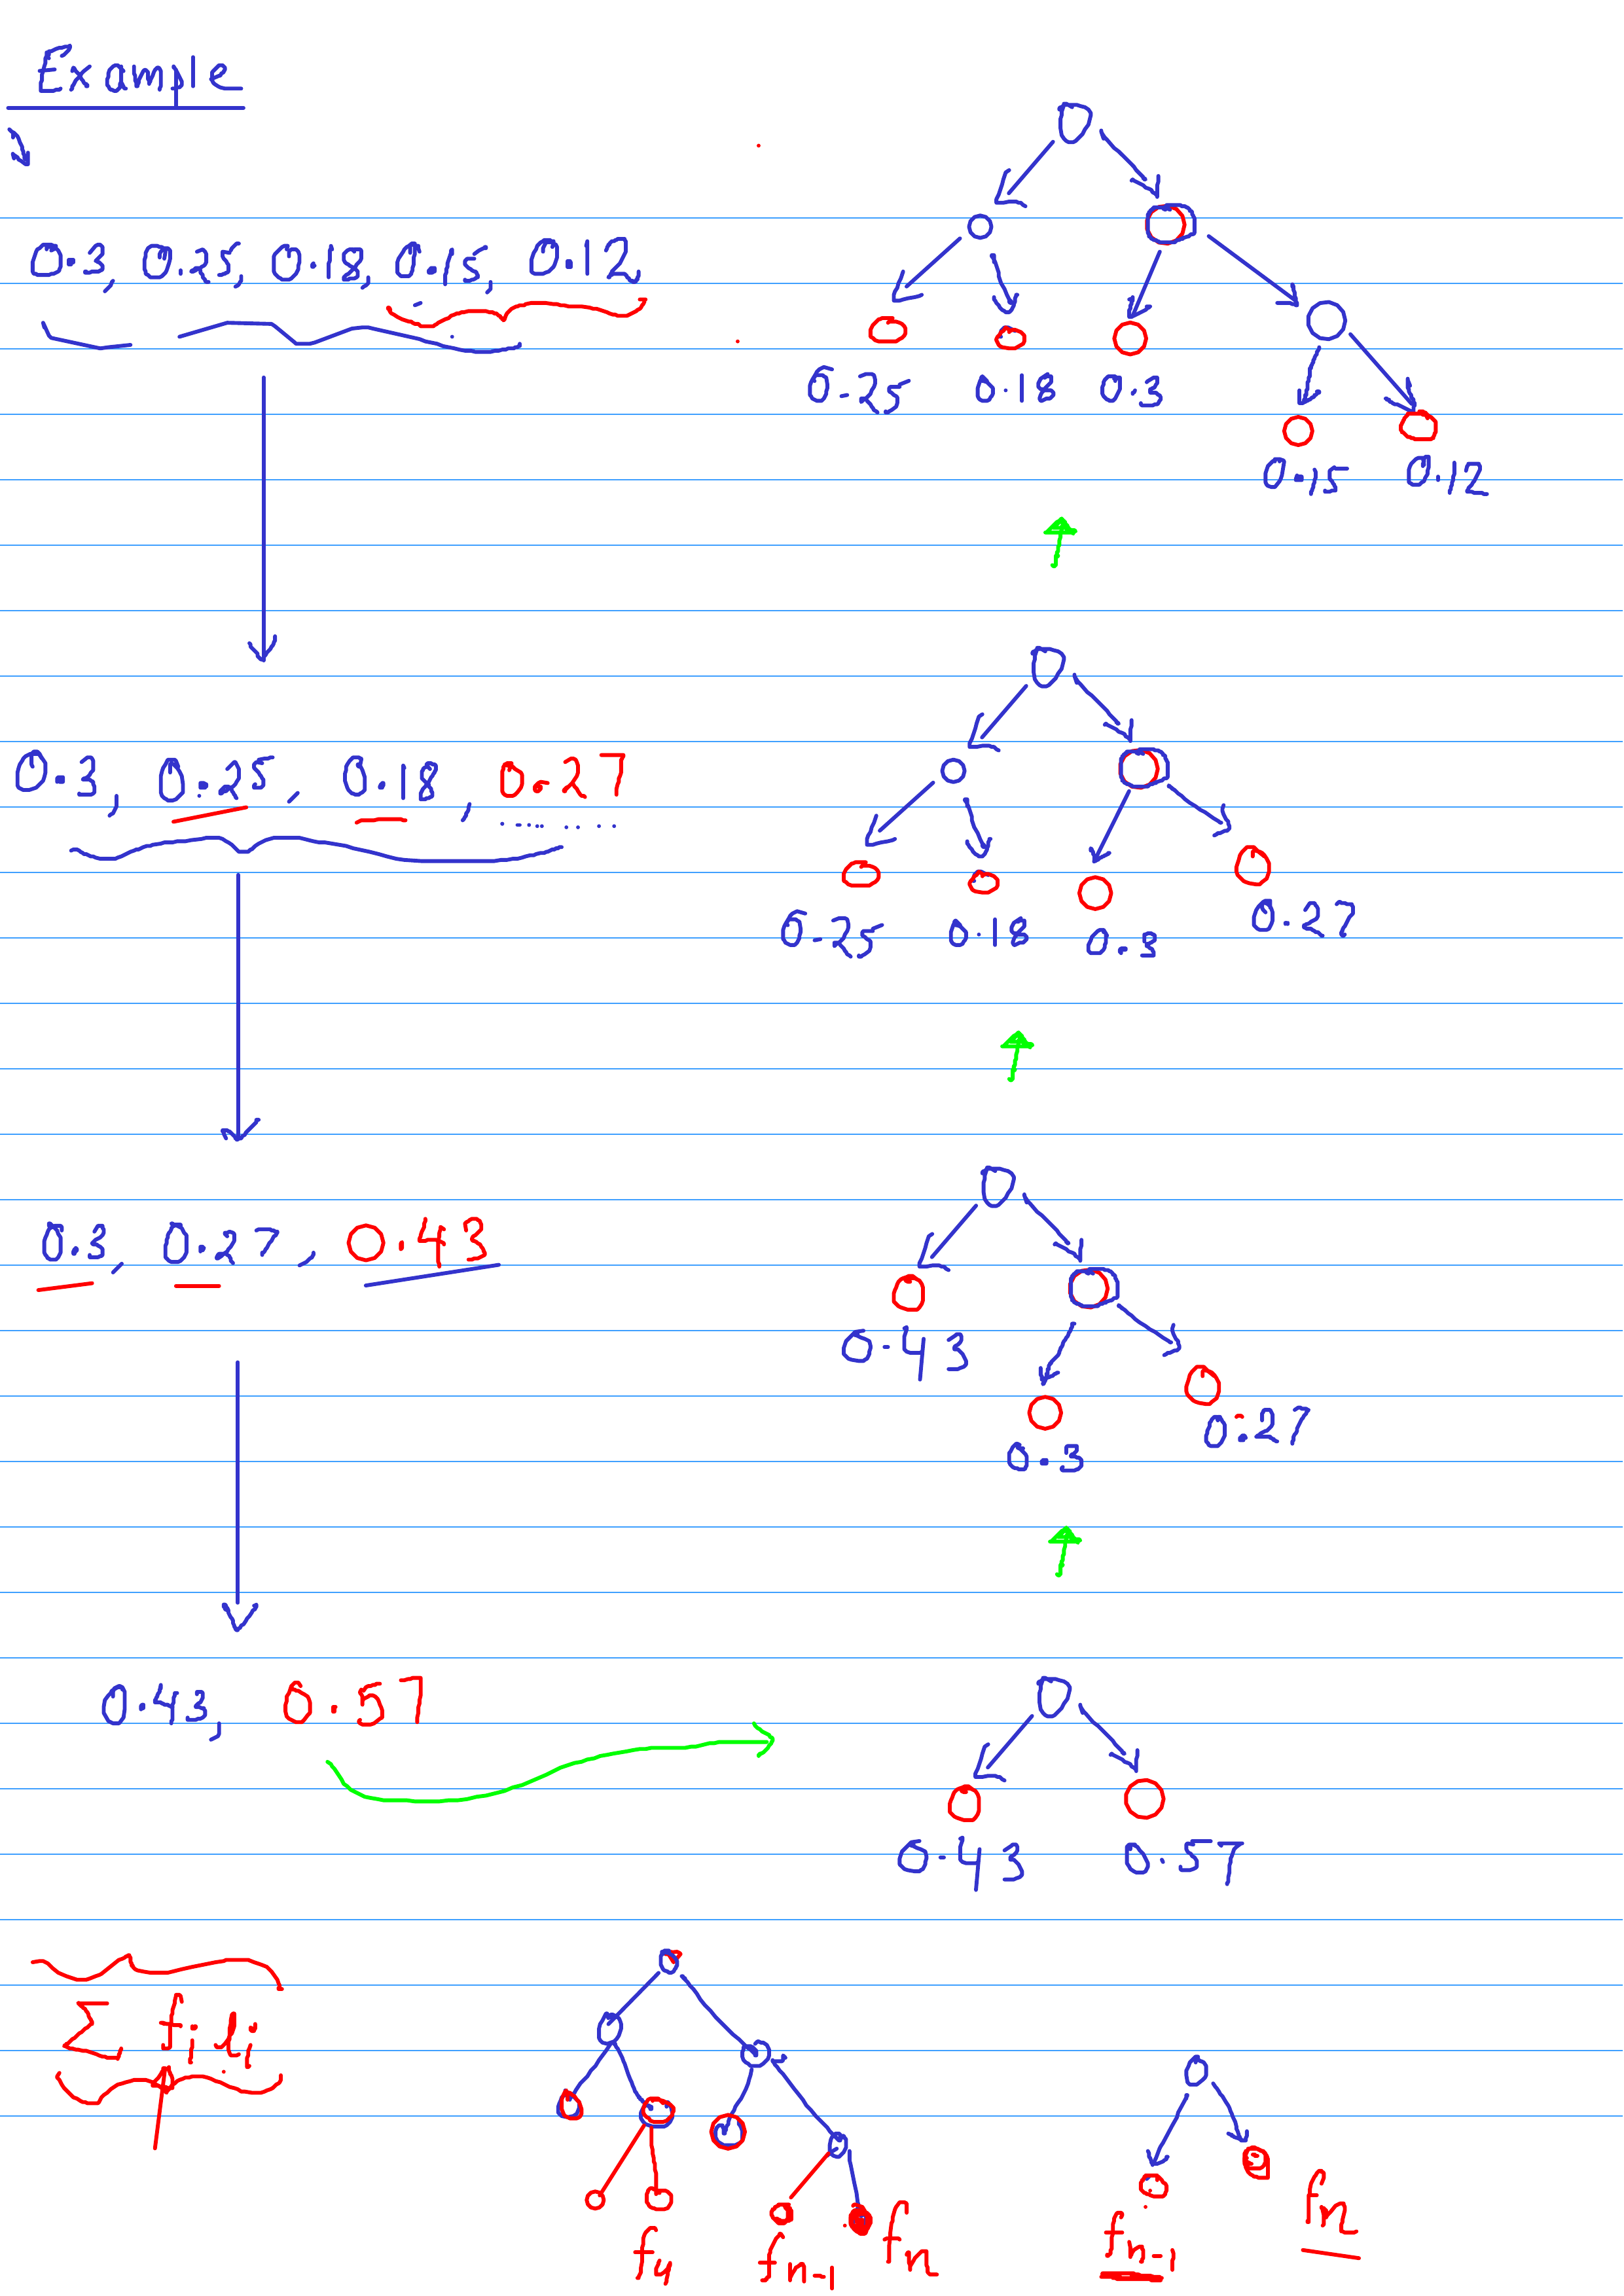 Example
0.3, 0.25, 0.18, 0.15, 0.12
0.25 0.18 0.3
0.15 0.12
0.3, 0.25, 0.18, 0.27
0.25 0.18 0.3 0.27
0.3, 0.27, 0.43
0.43
0.3 0.27
0.43, 0.57
0.43 0.57
∑ fᵢ lᵢ
f₄ fₙ₋₁ fₙ
fₙ₋₁ fₙ